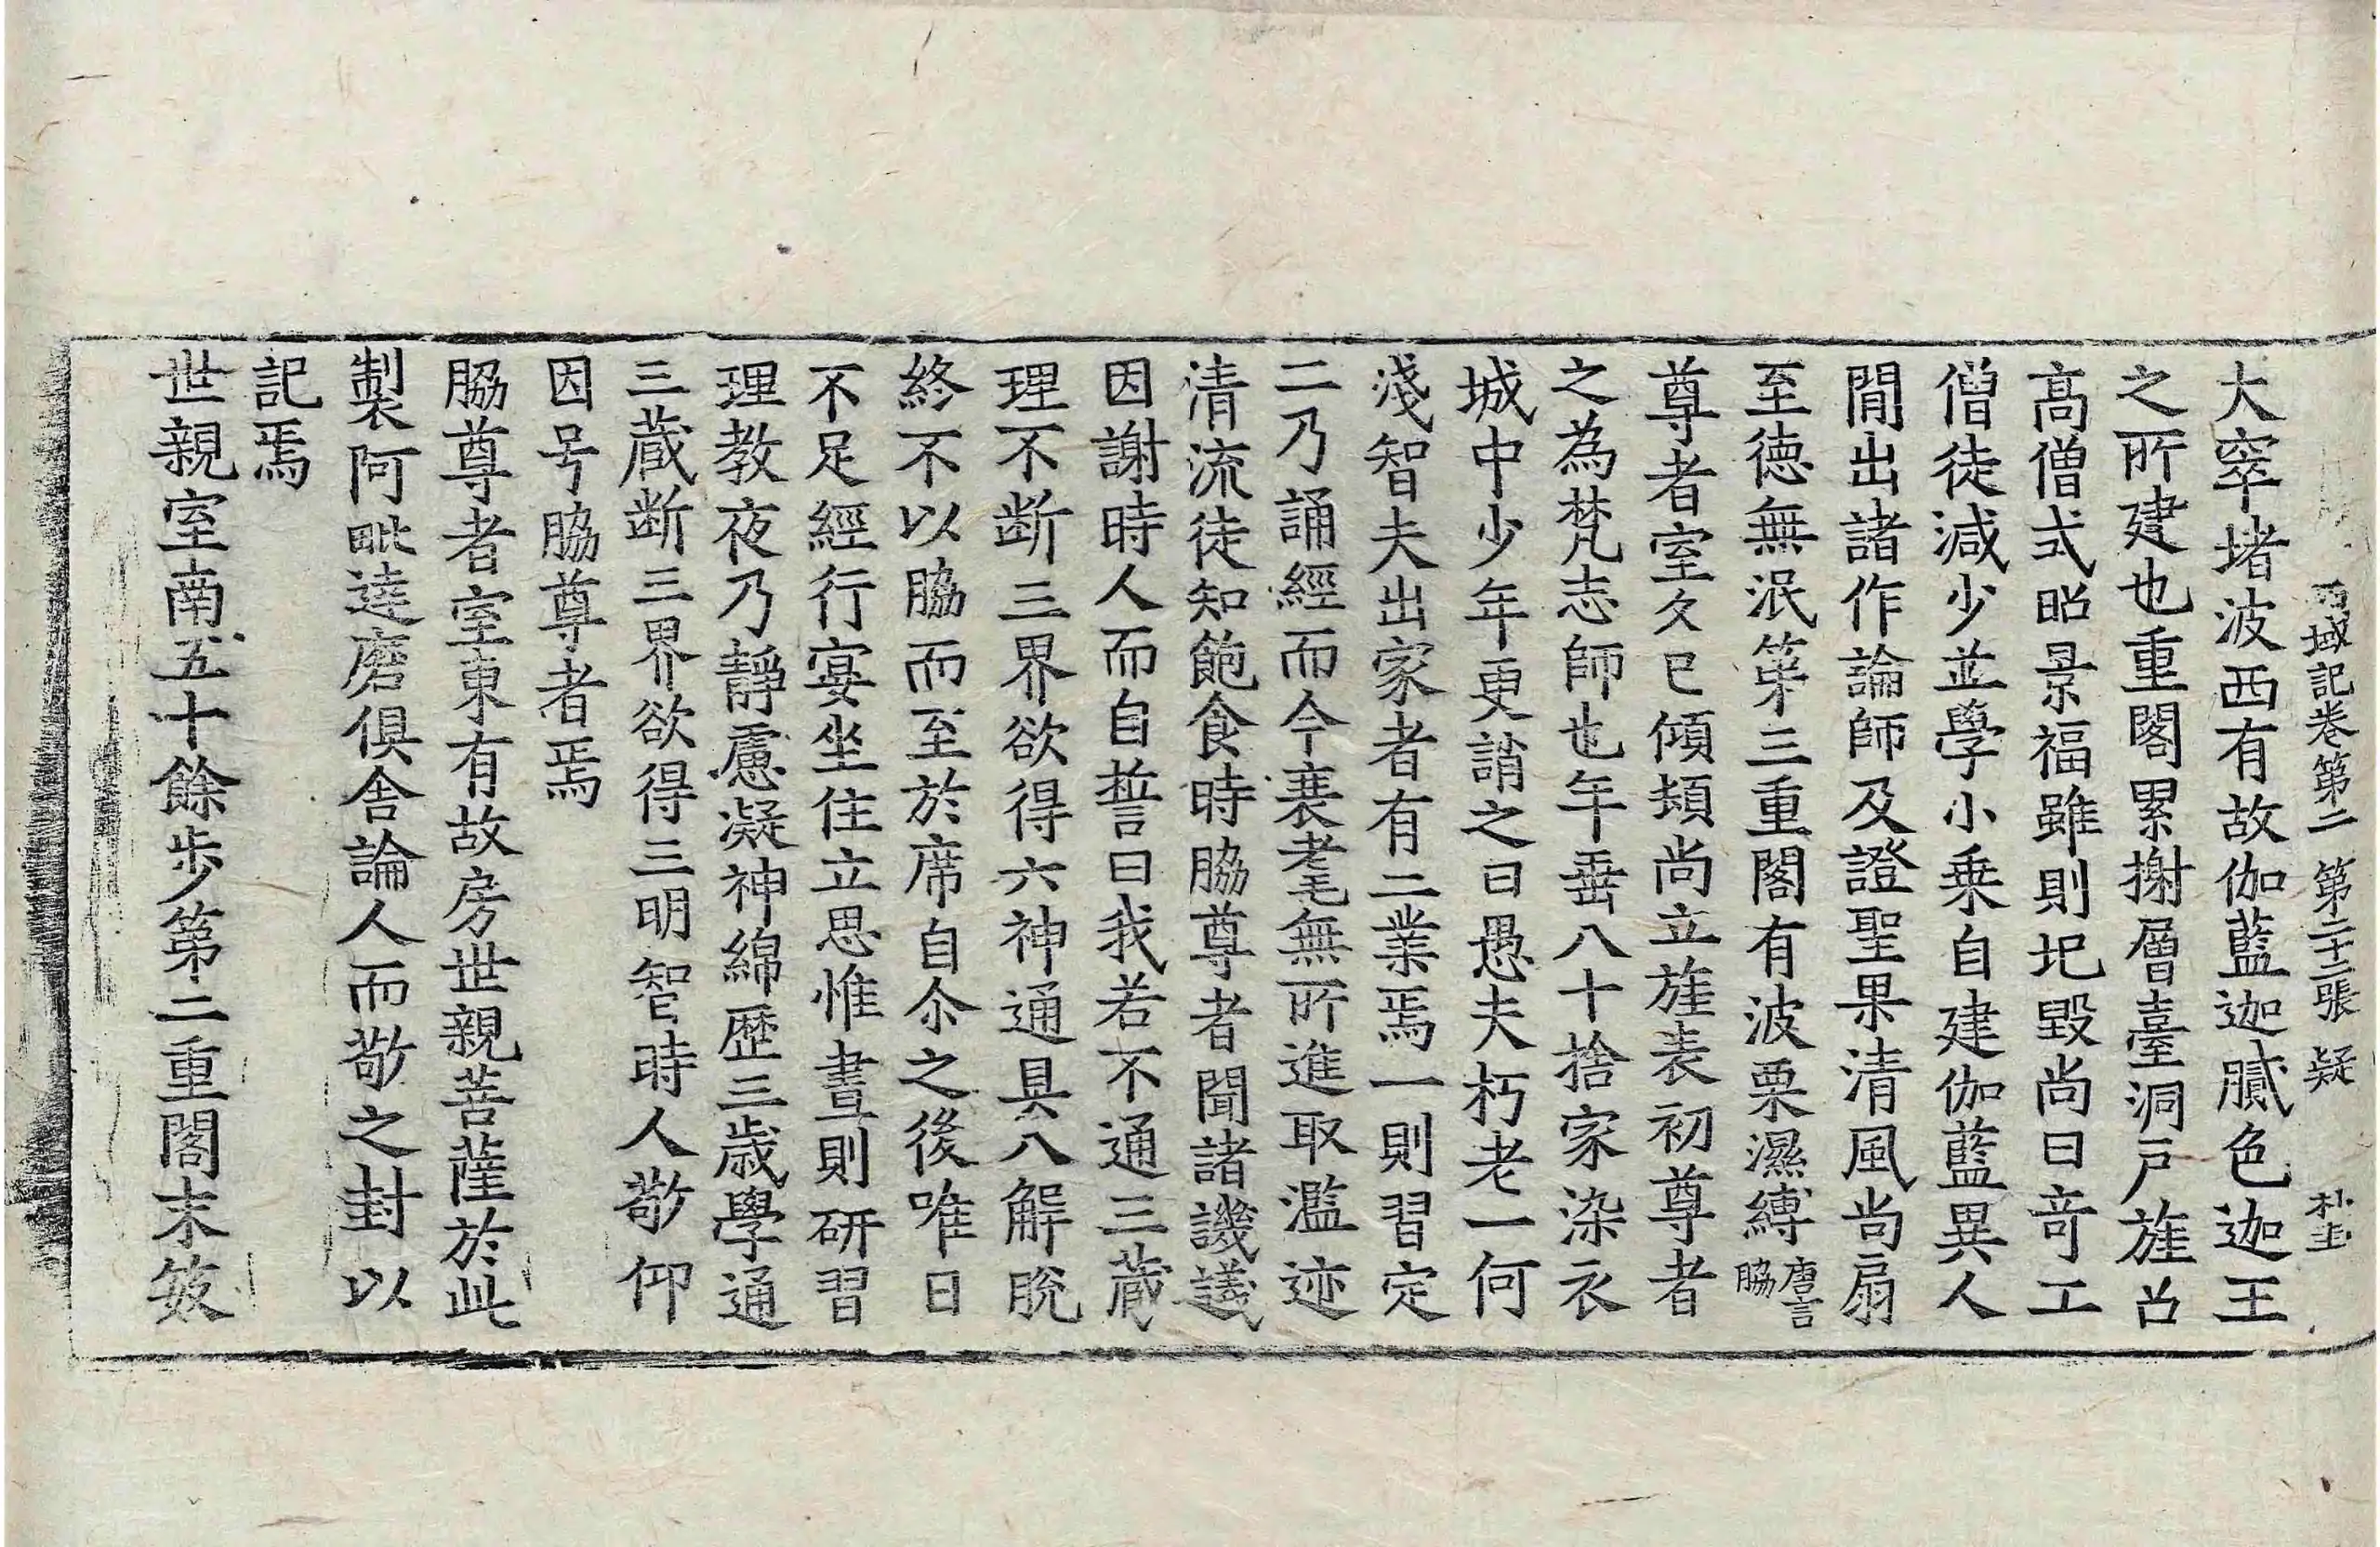 西域記卷第二 第二十二張 疑 朴圭
大窣堵波西有故伽藍迦膩色迦王
之所建也重閣累榭層臺洞戶旌召
高僧式昭景福雖則圮毀尚曰竒工
僧徒減少並學小乗自建伽藍異人
閒出諸作論師及證聖果清風尚扇
至德無泯第三重閣有波栗濕縛唐言脇
尊者室久已傾頽尚立旌表初尊者
之為梵志師也年垂八十捨家染衣
城中少年更誚之曰愚夫朽老一何
淺智夫出家者有二業焉一則習定
二乃誦經而今衰耄無所進取濫迹
清流徒知飽食時脇尊者聞諸譏議
因謝時人而自誓曰我若不通三藏
理不断三界欲得六神通具八解脫
終不以脇而至於席自尒之後唯日
不足經行宴坐住立思惟晝則研習
理教夜乃靜慮凝神綿歷三歲學通
三藏断三界欲得三明智時人敬仰
因号脇尊者焉
脇尊者室東有故房世親菩薩於此
製阿毗達磨俱舍論人而敬之封以
記焉
世親室南五十餘步第二重閣末笯